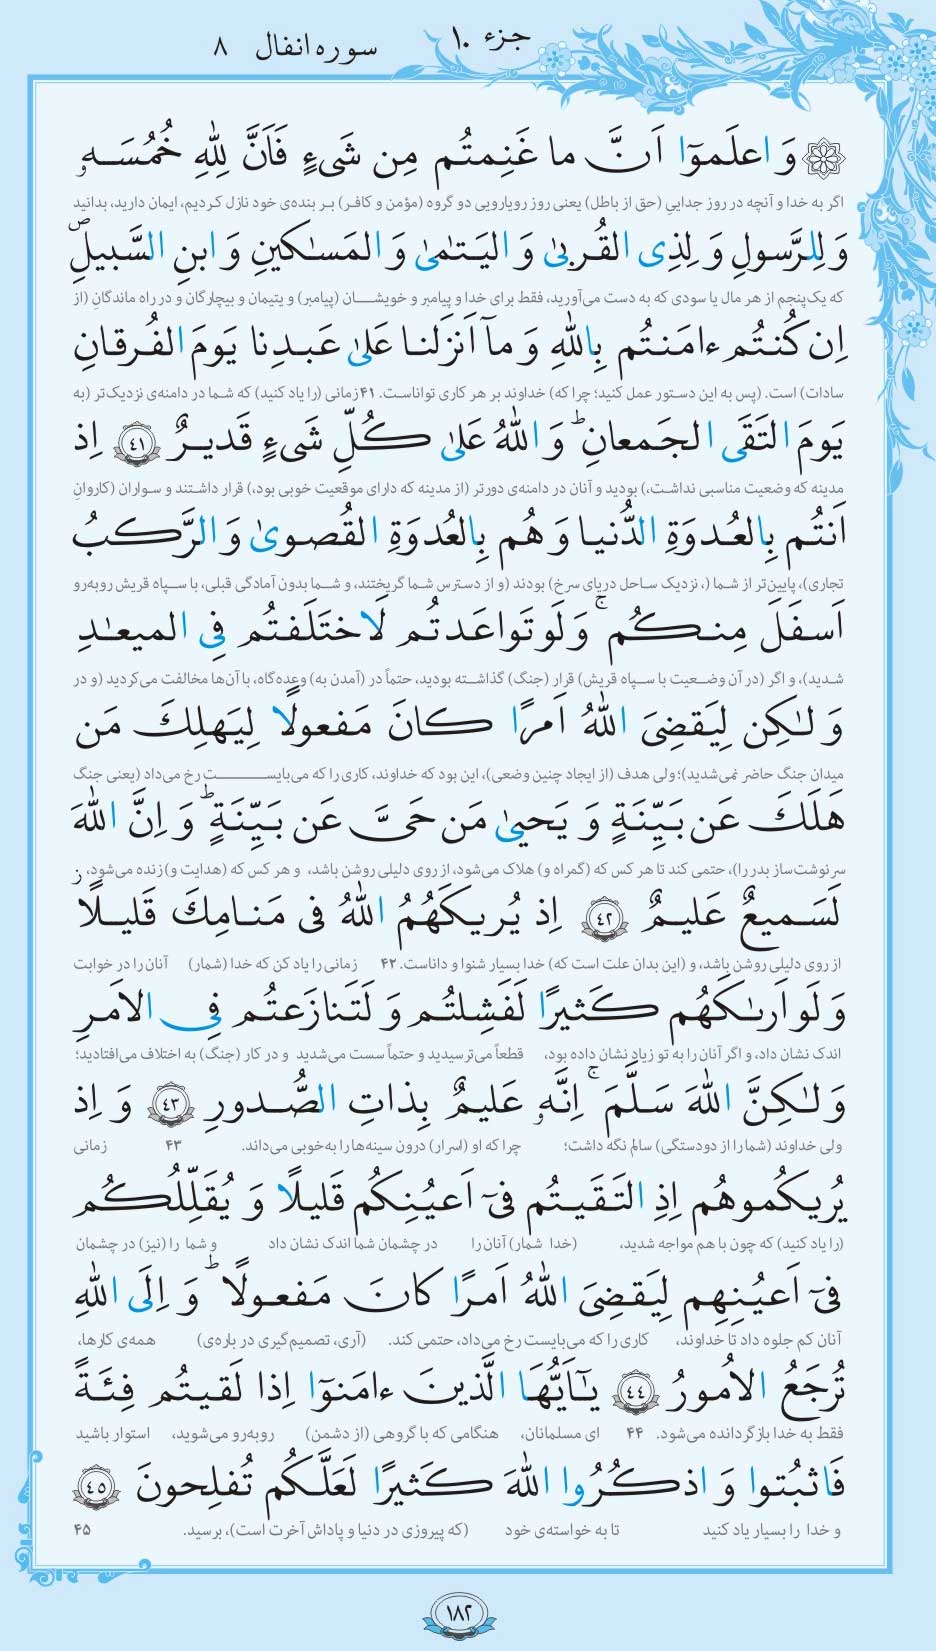 جزء ۱۰
سوره انفال ۸
وَ اعلَموٓا اَنَّ ما غَنِمتُم مِن شَیءٍ فَاَنَّ لِلّٰهِ خُمُسَهٗ
اگر به خدا و آنچه در روز جدایی (حق از باطل) یعنی روز رویارویی دو گروه (مؤمن و کافر) بر بنده‌ی خود نازل کردیم، ایمان دارید، بدانید
وَ لِلرَّسولِ وَ لِذِی القُربیٰ وَ الیَتٰمیٰ وَ المَسٰکینِ وَ ابنِ السَّبیلِ ۖ
که یک‌پنجم از هر مال یا سودی که به دست می‌آورید، فقط برای خدا و پیامبر و خویشان (پیامبر) و یتیمان و بیچارگان و در راه ماندگان (از
اِن کُنتُم ءامَنتُم بِاللّٰهِ وَ مآ اَنزَلنا عَلیٰ عَبدِنا یَومَ الفُرقانِ
سادات) است. (پس به این دستور عمل کنید؛ چرا که) خداوند بر هر کاری تواناست. ۴۱ زمانی (را یاد کنید) که شما در دامنه‌ی نزدیک‌تر (به
یَومَ التَقَی الجَمعانِ ؕ وَ اللّٰهُ عَلیٰ کُلِّ شَیءٍ قَدیرٌ ﴿۴۱﴾ اِذ
مدینه که وضعیت مناسبی نداشت،) بودید و آنان در دامنه‌ی دورتر (از مدینه که دارای موقعیت خوبی بود،) قرار داشتند و سواران (کاروانِ
اَنتُم بِالعُدوَةِ الدُّنیا وَ هُم بِالعُدوَةِ القُصویٰ وَ الرَّکبُ
تجاری)، پایین‌تر از شما (، نزدیک ساحل دریای سرخ) بودند (و از دسترس شما گریختند، و شما بدون آمادگی قبلی، با سپاه قریش روبه‌رو
اَسفَلَ مِنکُم ۚ وَ لَو تَواعَدتُم لَاختَلَفتُم فِی المیعٰدِ
شدید)، و اگر (در آن وضعیت با سپاه قریش) قرار (جنگ) گذاشته بودید، حتماً در (آمدن به) وعده‌گاه، با آن‌ها مخالفت می‌کردید (و در
وَ لٰکِن لِیَقضِیَ اللّٰهُ اَمرًا کانَ مَفعولًا لِیَهلِکَ مَن
میدان جنگ حاضر نمی‌شدید)؛ ولی هدف (از ایجاد چنین وضعی)، این بود که خداوند، کاری را که می‌بایست رخ می‌داد (یعنی جنگ
هَلَکَ عَن بَیِّنَةٍ وَ یَحییٰ مَن حَیَّ عَن بَیِّنَةٍ ؕ وَ اِنَّ اللّٰهَ
سرنوشت‌ساز بدر را)، حتمی کند تا هر کس که (گمراه و) هلاک می‌شود، از روی دلیلی روشن باشد، و هر کس که (هدایت و) زنده می‌شود،
لَسَمیعٌ عَلیمٌ ﴿۴۲﴾ اِذ یُریکَهُمُ اللّٰهُ فی مَنامِکَ قَلیلًا ز
از روی دلیلی روشن باشد، و (این بدان علت است که) خدا بسیار شنوا و داناست. ۴۲ زمانی را یاد کن که خدا (شمار) آنان را در خوابت
وَ لَو اَرٰىکَهُم کَثیرًا لَفَشِلتُم وَ لَتَنازَعتُم فِی الاَمرِ
اندک نشان داد، و اگر آنان را به تو زیاد نشان داده بود، قطعاً می‌ترسیدید و حتماً سست می‌شدید و در کار (جنگ) به اختلاف می‌افتادید؛
وَ لٰکِنَّ اللّٰهَ سَلَّمَ ۚ اِنَّهٗ عَلیمٌ بِذاتِ الصُّدورِ ﴿۴۳﴾ وَ اِذ
ولی خداوند (شما را از دودستگی) سالم نگه داشت؛ چرا که او (اسرار) درون سینه‌ها را به‌خوبی می‌داند. ۴۳ زمانی
یُریکُموهُم اِذِ التَقَیتُم فیٓ اَعیُنِکُم قَلیلًا وَ یُقَلِّلُکُم
(را یاد کنید) که چون با هم مواجه شدید، (خدا شمار) آنان را در چشمان شما اندک نشان داد و شما را (نیز) در چشمان
فیٓ اَعیُنِهِم لِیَقضِیَ اللّٰهُ اَمرًا کانَ مَفعولًا ؕ وَ اِلَی اللّٰهِ
آنان کم جلوه داد تا خداوند، کاری را که می‌بایست رخ می‌داد، حتمی کند. (آری، تصمیم‌گیری در باره‌ی) همه‌ی کارها،
تُرجَعُ الاُمورُ ﴿۴۴﴾ یٰٓاَیُّهَا الَّذینَ ءامَنوٓا اِذا لَقیتُم فِئَةً
فقط به خدا بازگردانده می‌شود. ۴۴ ای مسلمانان، هنگامی که با گروهی (از دشمن) روبه‌رو می‌شوید، استوار باشید
فَاثبُتوا وَ اذکُرُوا اللّٰهَ کَثیرًا لَعَلَّکُم تُفلِحونَ ﴿۴۵﴾
و خدا را بسیار یاد کنید تا به خواسته‌ی خود (که پیروزی در دنیا و پاداش آخرت است)، برسید. ۴۵
۱۸۲